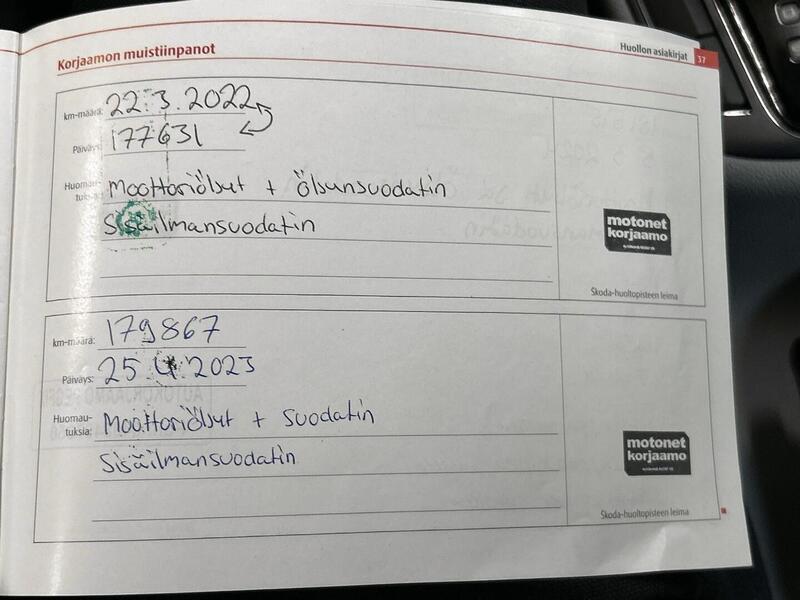 Korjaamon muistiinpanot
Huollon asiakirjat 37
km-määrä: 22.3.2022
Päiväys: 177631
Huomau-
tuksia: Moottoriöljyt + öljynsuodatin
Sisäilmansuodatin
motonet
korjaamo
Škoda-huoltopisteen leima
km-määrä: 179867
Päiväys: 25 4 2023
Huomau-
tuksia: Moottoriöljyt + suodatin
Sisäilmansuodatin
motonet
korjaamo
Škoda-huoltopisteen leima